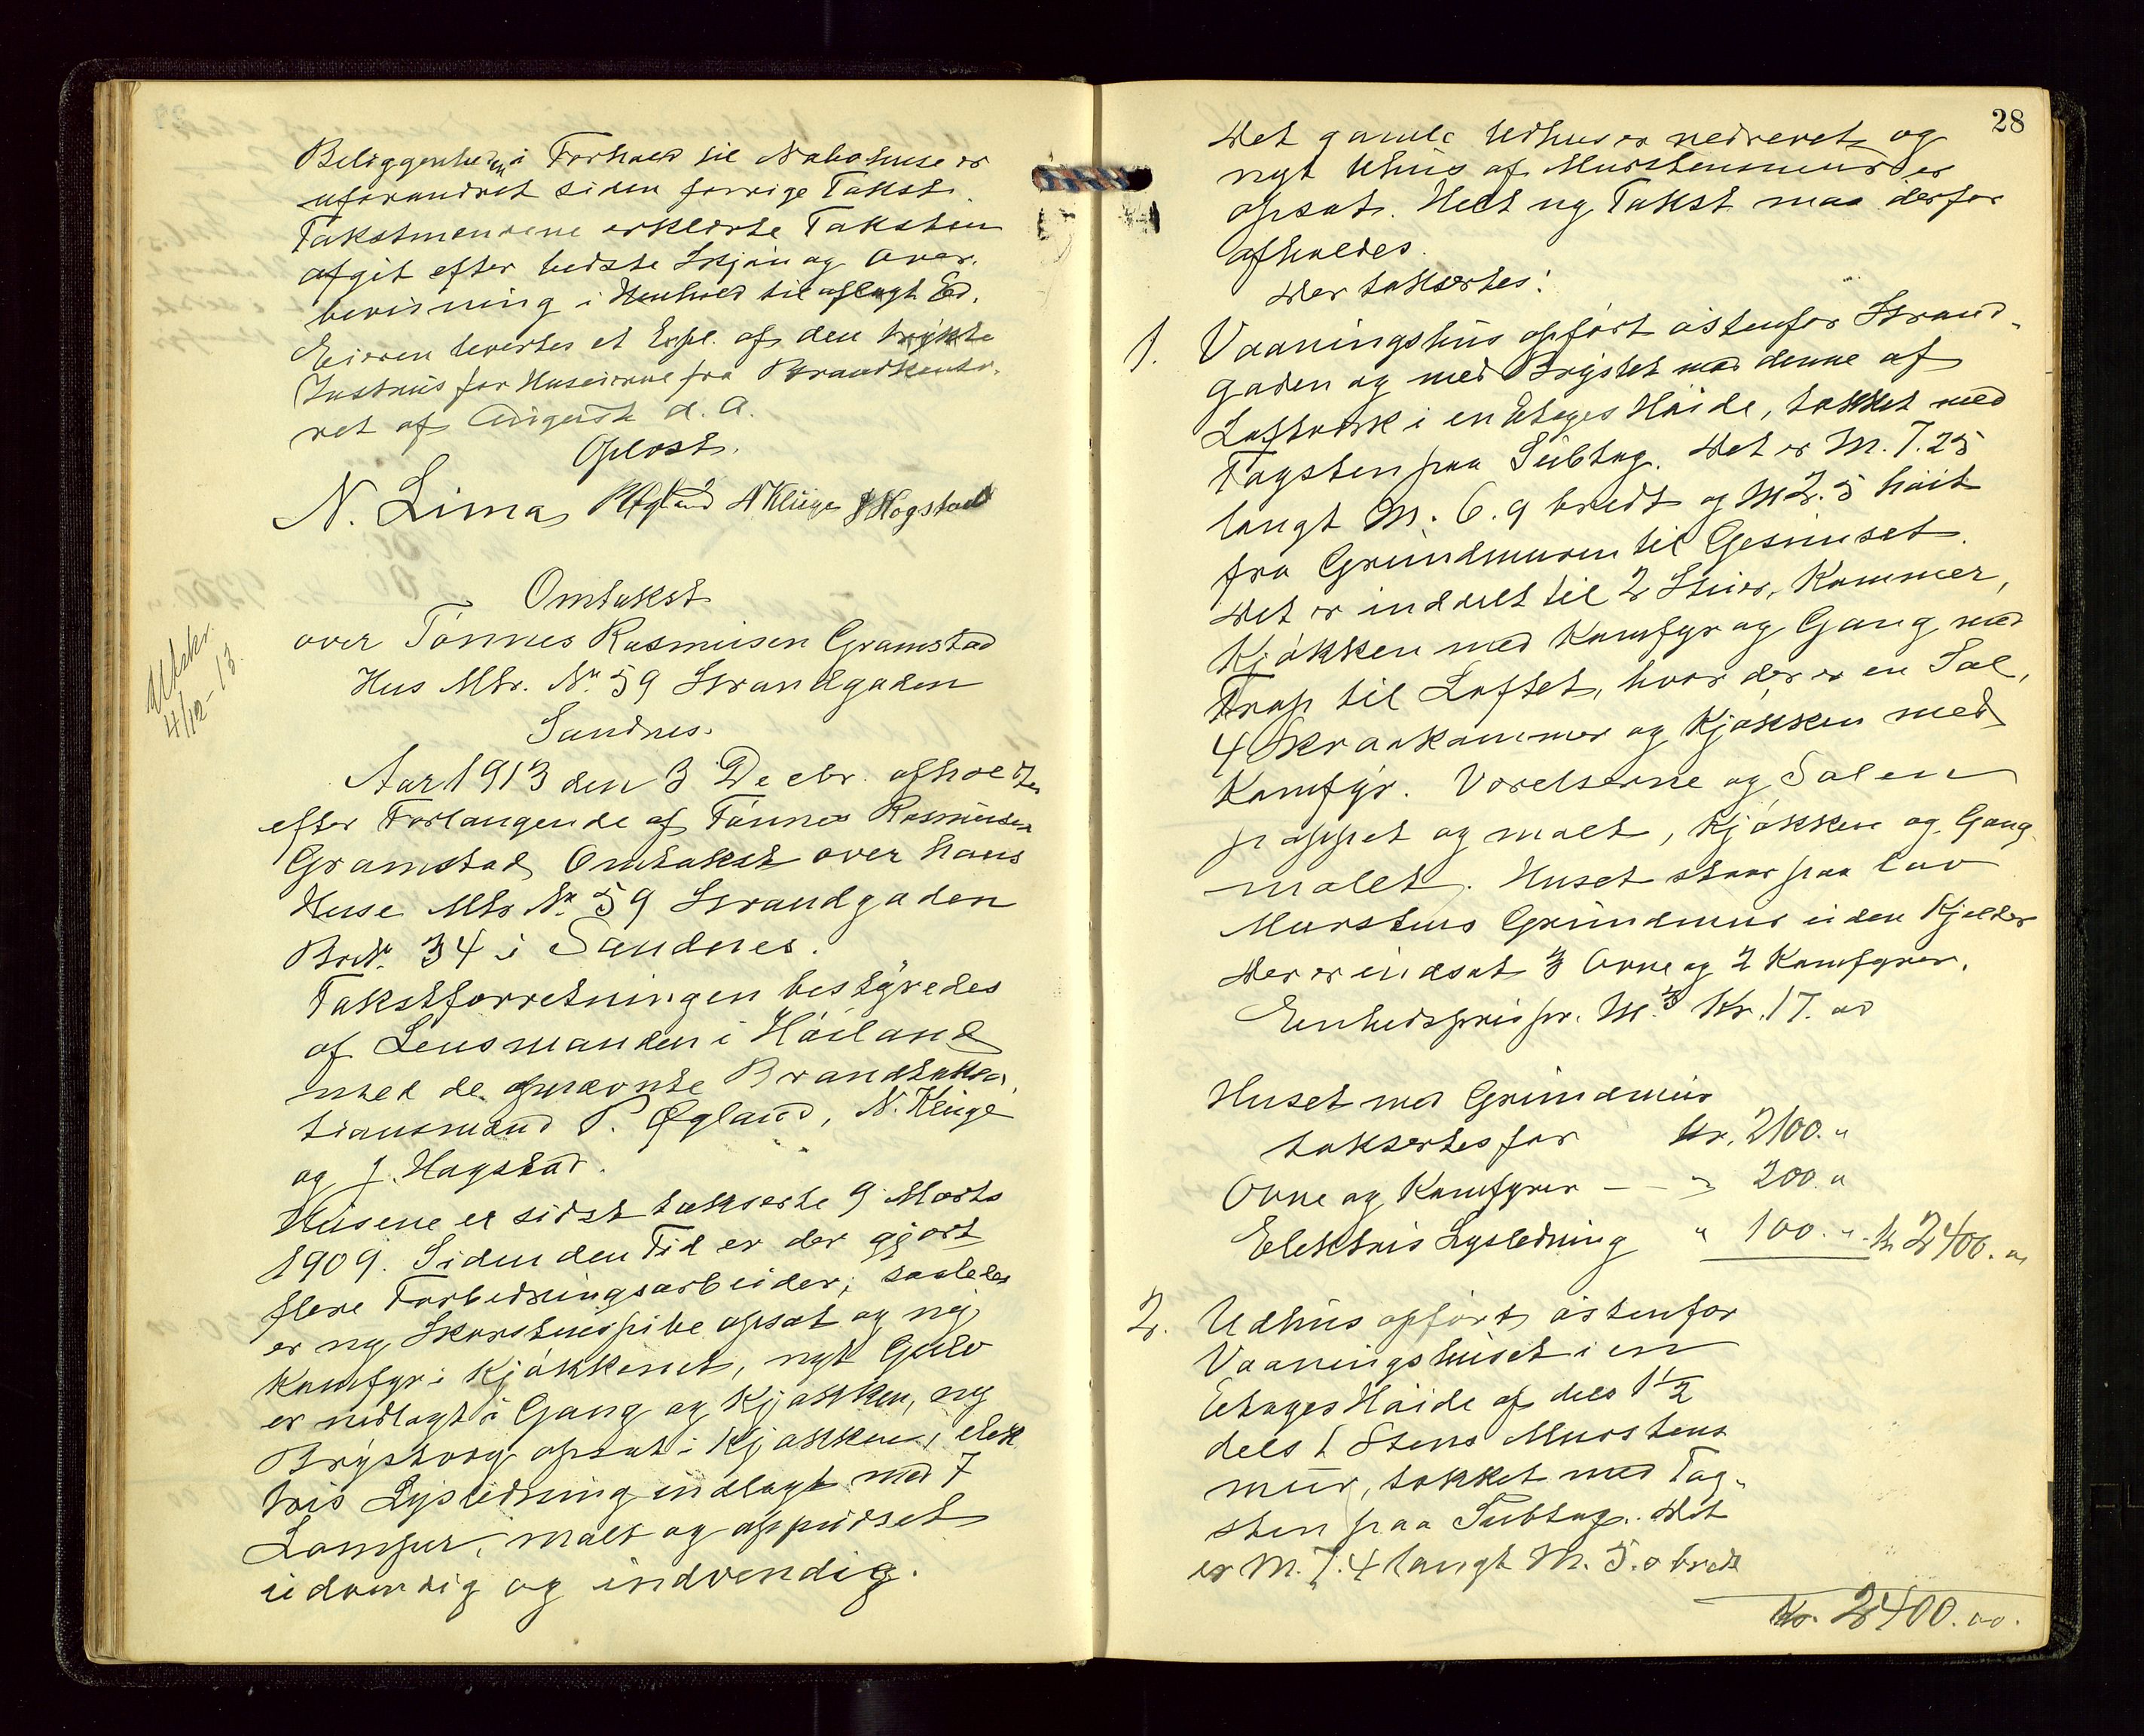 Beliggenheden i Forhold til Nabohuse er
uforandret siden forrige Takst.
Takstmendene erklerte Taksten
afgit efter bedste Skjøn og Over-
bevisning i Henhold til aflagt Ed.
Eieren levertes et Expl. af den trykte
Instrus for Huseierne fra Brandkonto-
ret af August d. A.
Oplæst.
N. Lima P Øgland N Kluge J Hogstad
Omtakst
over Tønnes Rasmusen Gramstad
Hus Mtr. Nr. 59 Strandgaden
Sandnes.
Utskr.
4/12-13.
Aar 1913 den 3 Decbr. afholdtes
efter Forlangende af Tønnes Rasmusen
Gramstad Omtakst over hans
Huse Mtr Nr. 59 Strandgaden
Br.Nr. 34 i Sandnes.
Takstforretningen bestyredes
af Lensmanden i Høiland
med de opnævnte Brandtaksa-
tiansmænd P. Øgland, N. Kluge
og J. Hogstad.
Husene er sidst takserte 9 Marts
1909. Siden den Tid er der gjort
flere Forbedringsarbeider, saaledes
er ny Skorstenspibe opsat og ny
Komfyr i Kjøkkenet, nyt Gulv
er nedlagt i Gang og Kjøkken, ny
Brystvæg opsat i Kjøkken, elek
tris Lysledning indlagt med 7
Lamper, malt og oppudset
udvendig og indvendig.
28
Det gamle Udhus er nedrevet og
nyt Uhus af Murstensmur er
opsat. Helt ny Takst maa derfor
afholdes.
Der taksertes:
1. Vaaningshus opført østenfor Strand-
gaden og med Brystet mod denne af
Loftværk i en Etages Høide, takket med
Tagsten paa Subtag. Det er M. 7.25
langt M. 6.9 bredt og M 2.5 høit
fra Grundmuren til Gesimset.
Det er inddelt til 2 Stuer, Kammer,
Kjøkken med Komfyr og Gang med
Trap til Loftet, hvor der er en Sal,
4 Skraakammer og Kjøkken med
Komfyr. Værelserne og Salen
pappet og malt, Kjøkken og Gang
malet. Huset staar paa lav
Murstens Grundmur uden Kjelder
Der er indsat 3 Ovne og 2 Komfyrer.
Enhedspris pr. M.3 Kr. 17.00
Huset med Grundmur
taksertes for Kr. 2100. "
Ovne og Komfyrer — " 200. "
Elektris Lysledning " 100. " Kr 2400. 00
2. Udhus opført østenfor
Vaaningshuset i en
Etages Høide af dels 1 1/2
dels 1 Stens Murstens
mur, takket med Tag-
sten paa Subtag. Det
er M. 7.4 langt M. 5.0 bredt
Kr. 2400.00.